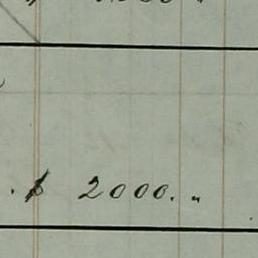 . $ 2000. "